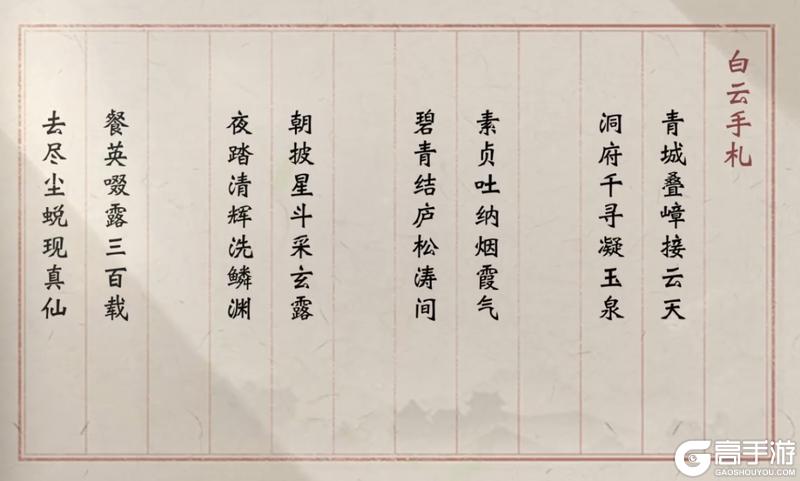 白云手札
青城叠嶂接云天
洞府千寻凝玉泉
素贞吐纳烟霞气
碧青结庐松涛间
朝披星斗采玄露
夜踏清辉洗鳞渊
餐英啜露三百载
去尽尘蜕现真仙
高手游
GAOSHOUYOU.COM